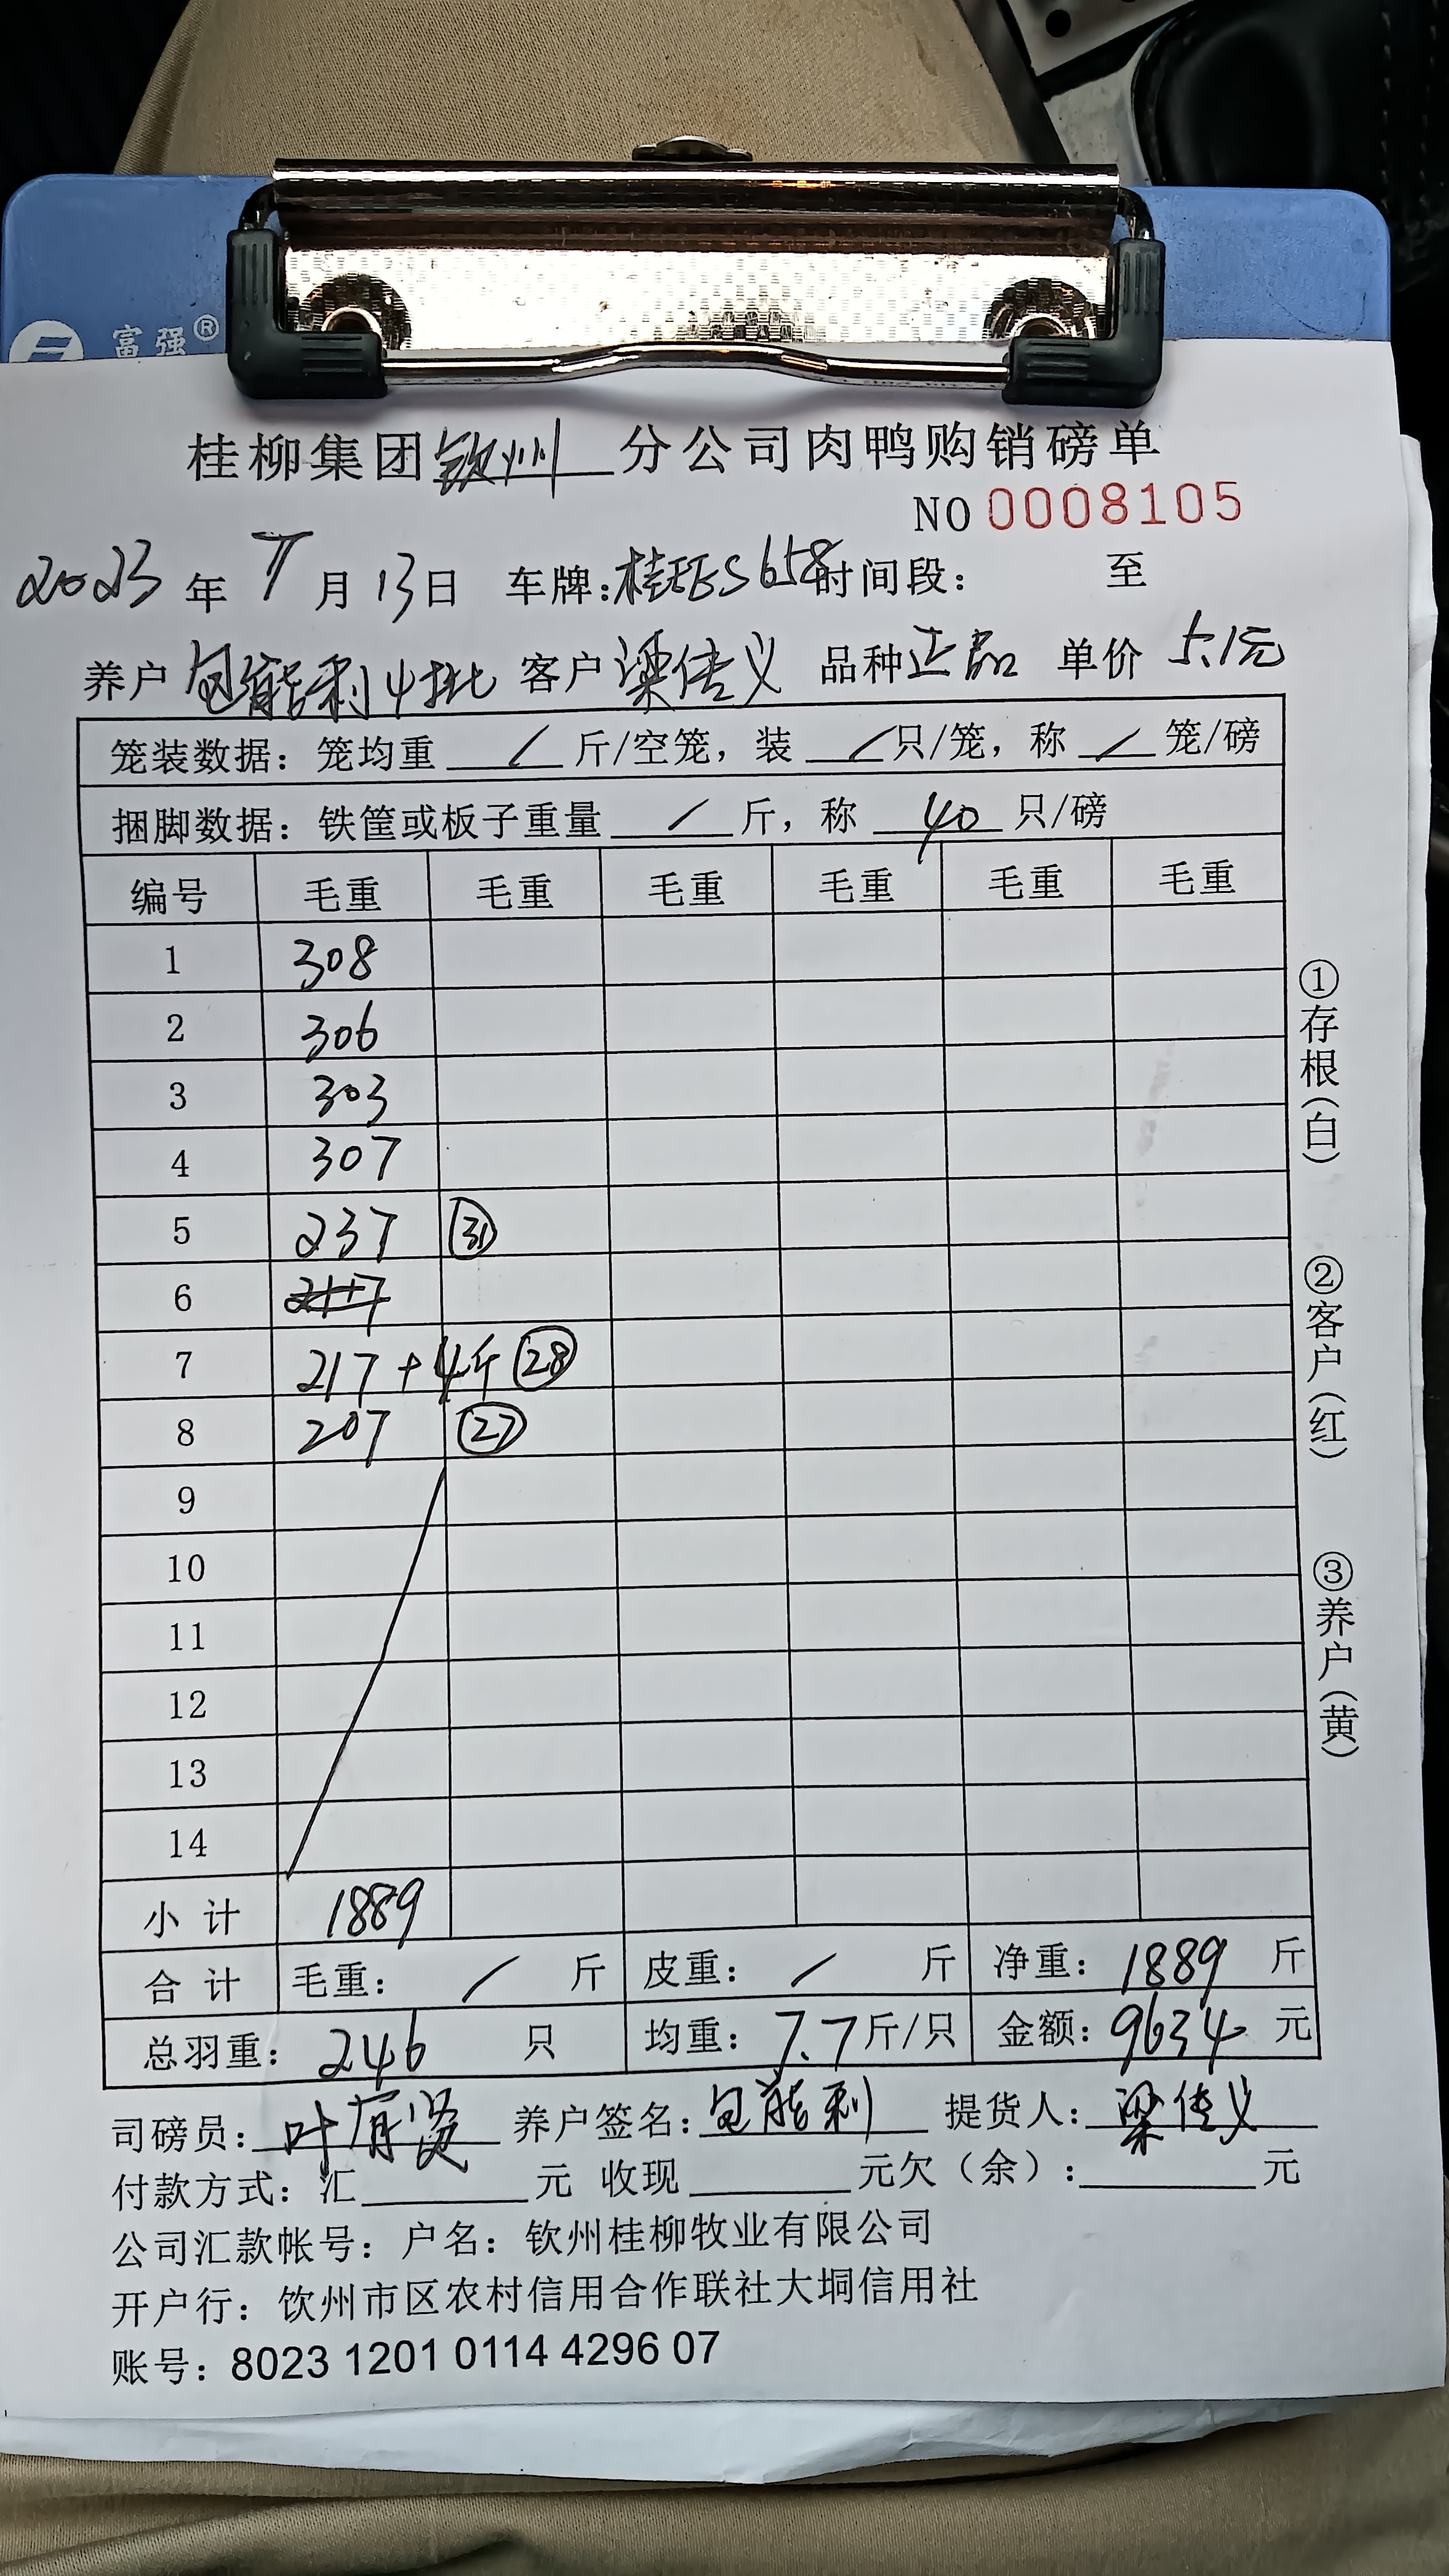 富强®
桂柳集团钦州分公司肉鸭购销磅单
NO 0008105
2023年7月13日 车牌:桂EES658时间段: 至
养户 包能利4批 客户 梁传义 品种 正品 单价 5.1元
笼装数据: 笼均重 / 斤/空笼, 装 / 只/笼, 称 / 笼/磅
捆脚数据: 铁筐或板子重量 / 斤, 称 40 只/磅
编号 毛重 毛重 毛重 毛重 毛重 毛重
1 308
2 306
3 303
4 307
5 237 ㉛
6
7 217+4斤 ㉘
8 207 ㉗
9
10
11
12
13
14
小计 1889
合计 毛重: / 斤 皮重: / 斤 净重: 1889 斤
总羽重: 246 只 均重: 7.7斤/只 金额: 9634 元
司磅员: 叶有贤 养户签名: 包能利 提货人: 梁传义
付款方式: 汇 元 收现 元欠(余): 元
公司汇款帐号: 户名: 钦州桂柳牧业有限公司
开户行: 钦州市区农村信用合作联社大垌信用社
账号: 8023 1201 0114 4296 07
①存根(白)
②客户(红)
③养户(黄)